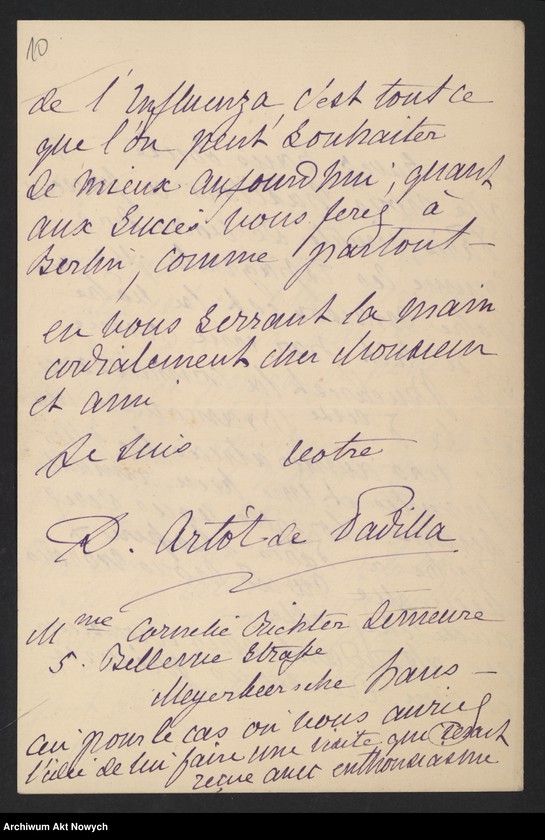 10
de l'Influenza, c'est tout ce
que l'on peut souhaiter
de mieux aujourd'hui; quant
aux succès vous ferez à
Berlin, comme partout —
en vous serrant la main
cordialement cher Monsieur
et ami
Je suis votre
D. Artôt de Padilla
Mme Cornelie Richter demeure
5. Bellevue Straße
Meyerbeersche Haus —
au pour le cas où vous auriez
l'idée de lui faire une visite que serait
reçue avec enthousiasme
Archiwum Akt Nowych